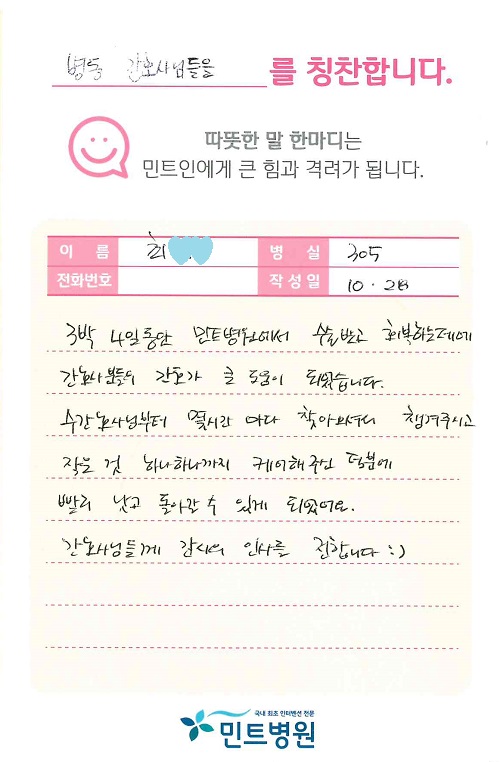 병동 간호사님들을 를 칭찬합니다.
따뜻한 말 한마디는
민트인에게 큰 힘과 격려가 됩니다.
이 름 최 병 실 305
전화번호 작성일 10. 28
3박 4일동안 민트병원에서 수술받고 회복하는데에
간호사분들의 간호가 큰 도움이 되었습니다.
수간호사님부터 몇시간 마다 찾아오셔서 챙겨주시고
작은 것 하나하나까지 케어해주신 덕분에
빨리 낫고 돌아갈 수 있게 되었어요.
간호사님들께 감사의 인사를 전합니다 :)
국내 최초 인터벤션 전문
민트병원